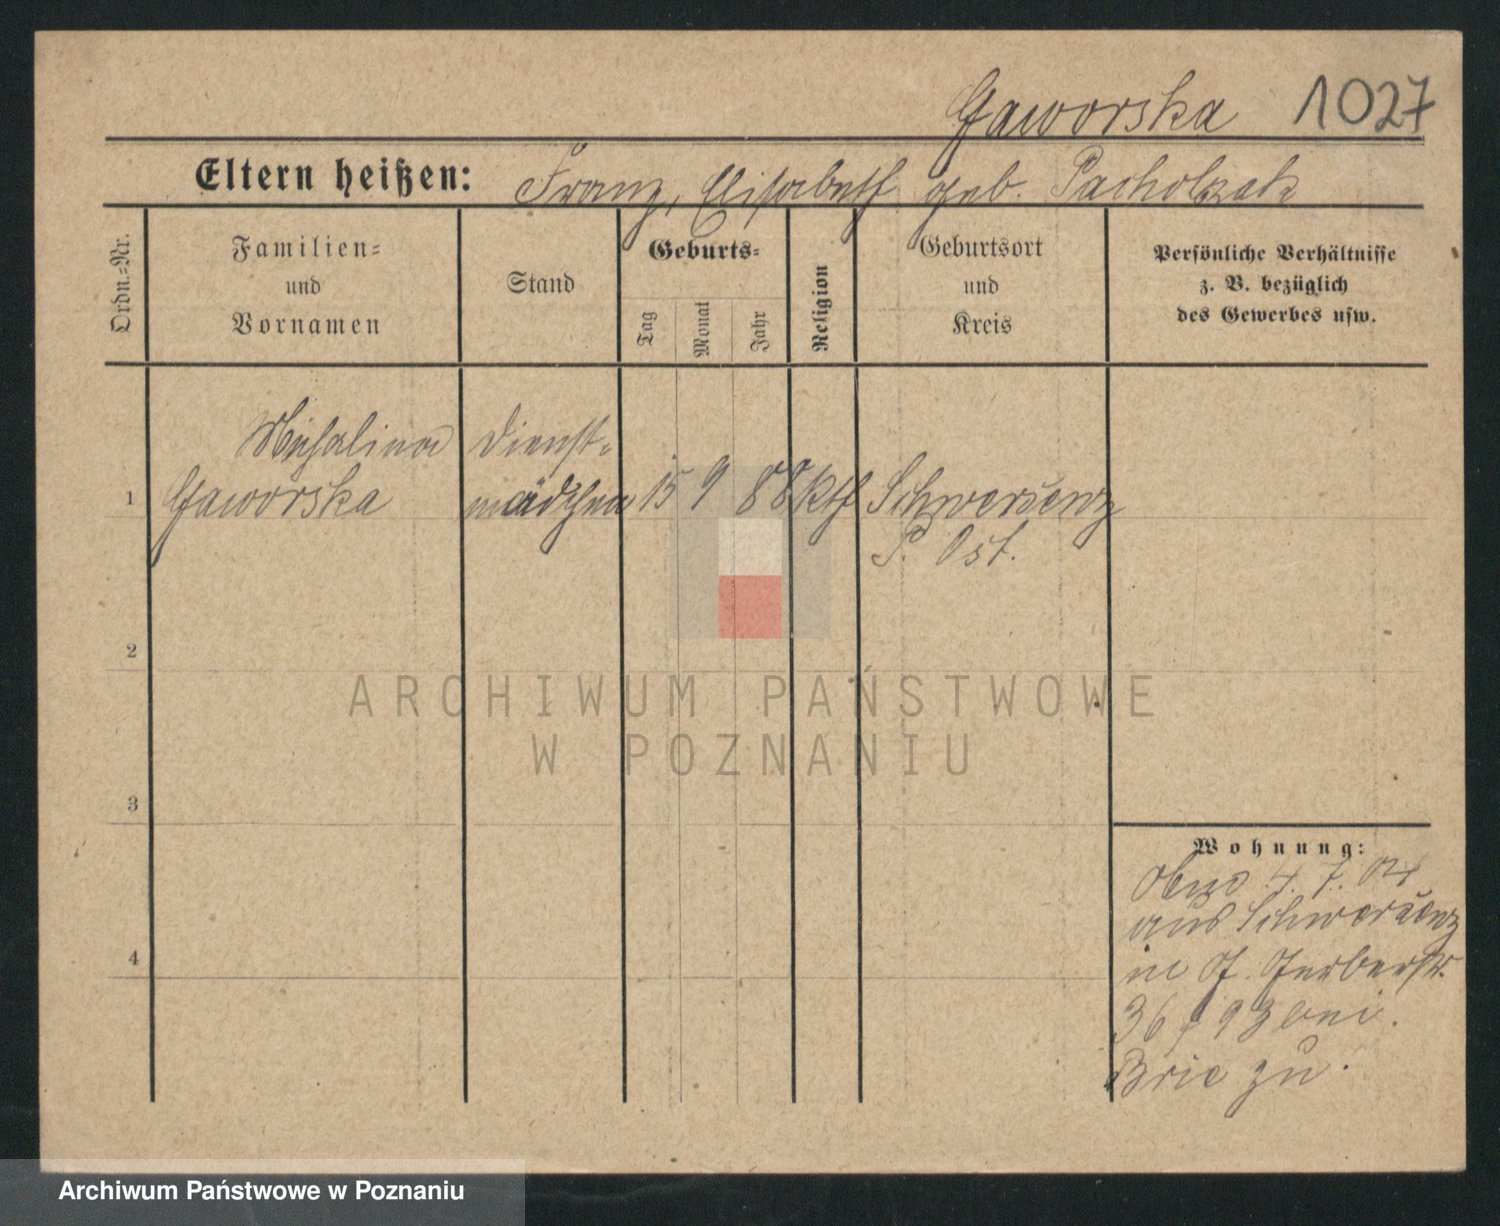 Gaworska 1027
Eltern heißen: Franz, Elisabeth geb. Pacholczak
Ordn.=Nr.
Familien=
und
Vornamen
Stand
Geburts=
Tag
Monat
Jahr
Religion
Geburtsort
und
Kreis
Persönliche Verhältnisse
z. B. bezüglich
des Gewerbes usw.
Michalina Dienst-
1 Gaworska mädchen 15 9 88 kth Schwersenz
P. Ost.
2
3
4
ARCHIWUM PAŃSTWOWE
W POZNANIU
Wohnung:
4. 7. 04
aus Schwersenz
in Gerberstr.
36 93 bei
Brie zu.
Archiwum Państwowe w Poznaniu